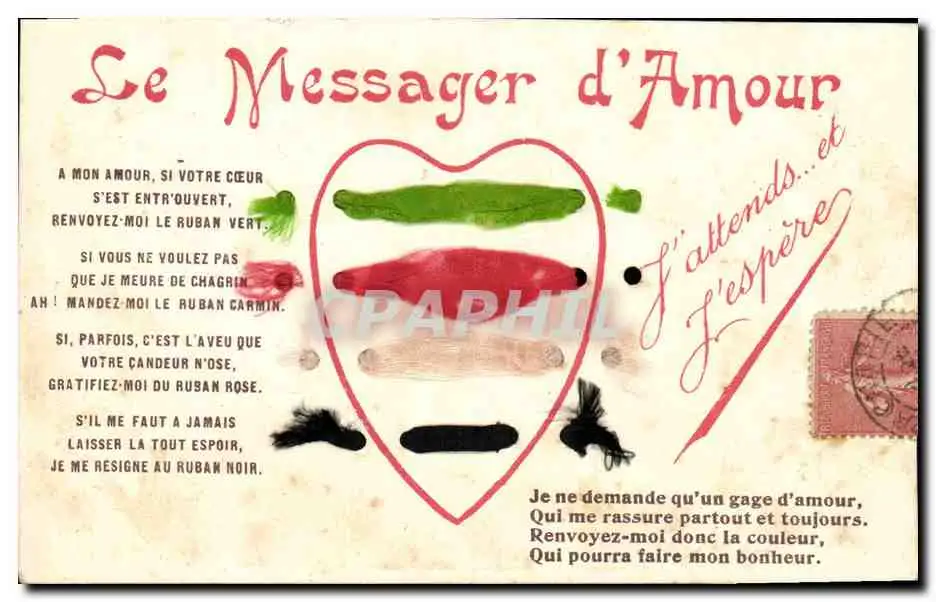 Le Messager d'Amour
A MON AMOUR, SI VOTRE CŒUR
S'EST ENTR'OUVERT,
RENVOYEZ-MOI LE RUBAN VERT.
SI VOUS NE VOULEZ PAS
QUE JE MEURE DE CHAGRIN
AH! MANDEZ-MOI LE RUBAN CARMIN.
SI, PARFOIS, C'EST L'AVEU QUE
VOTRE ÇANDEUR N'OSE,
GRATIFIEZ-MOI DU RUBAN ROSE.
S'IL ME FAUT A JAMAIS
LAISSER LA TOUT ESPOIR,
JE ME RÉSIGNE AU RUBAN NOIR.
J'attends... et
J'espère
CPARAPHIL
Je ne demande qu'un gage d'amour,
Qui me rassure partout et toujours.
Renvoyez-moi donc la couleur,
Qui pourra faire mon bonheur.